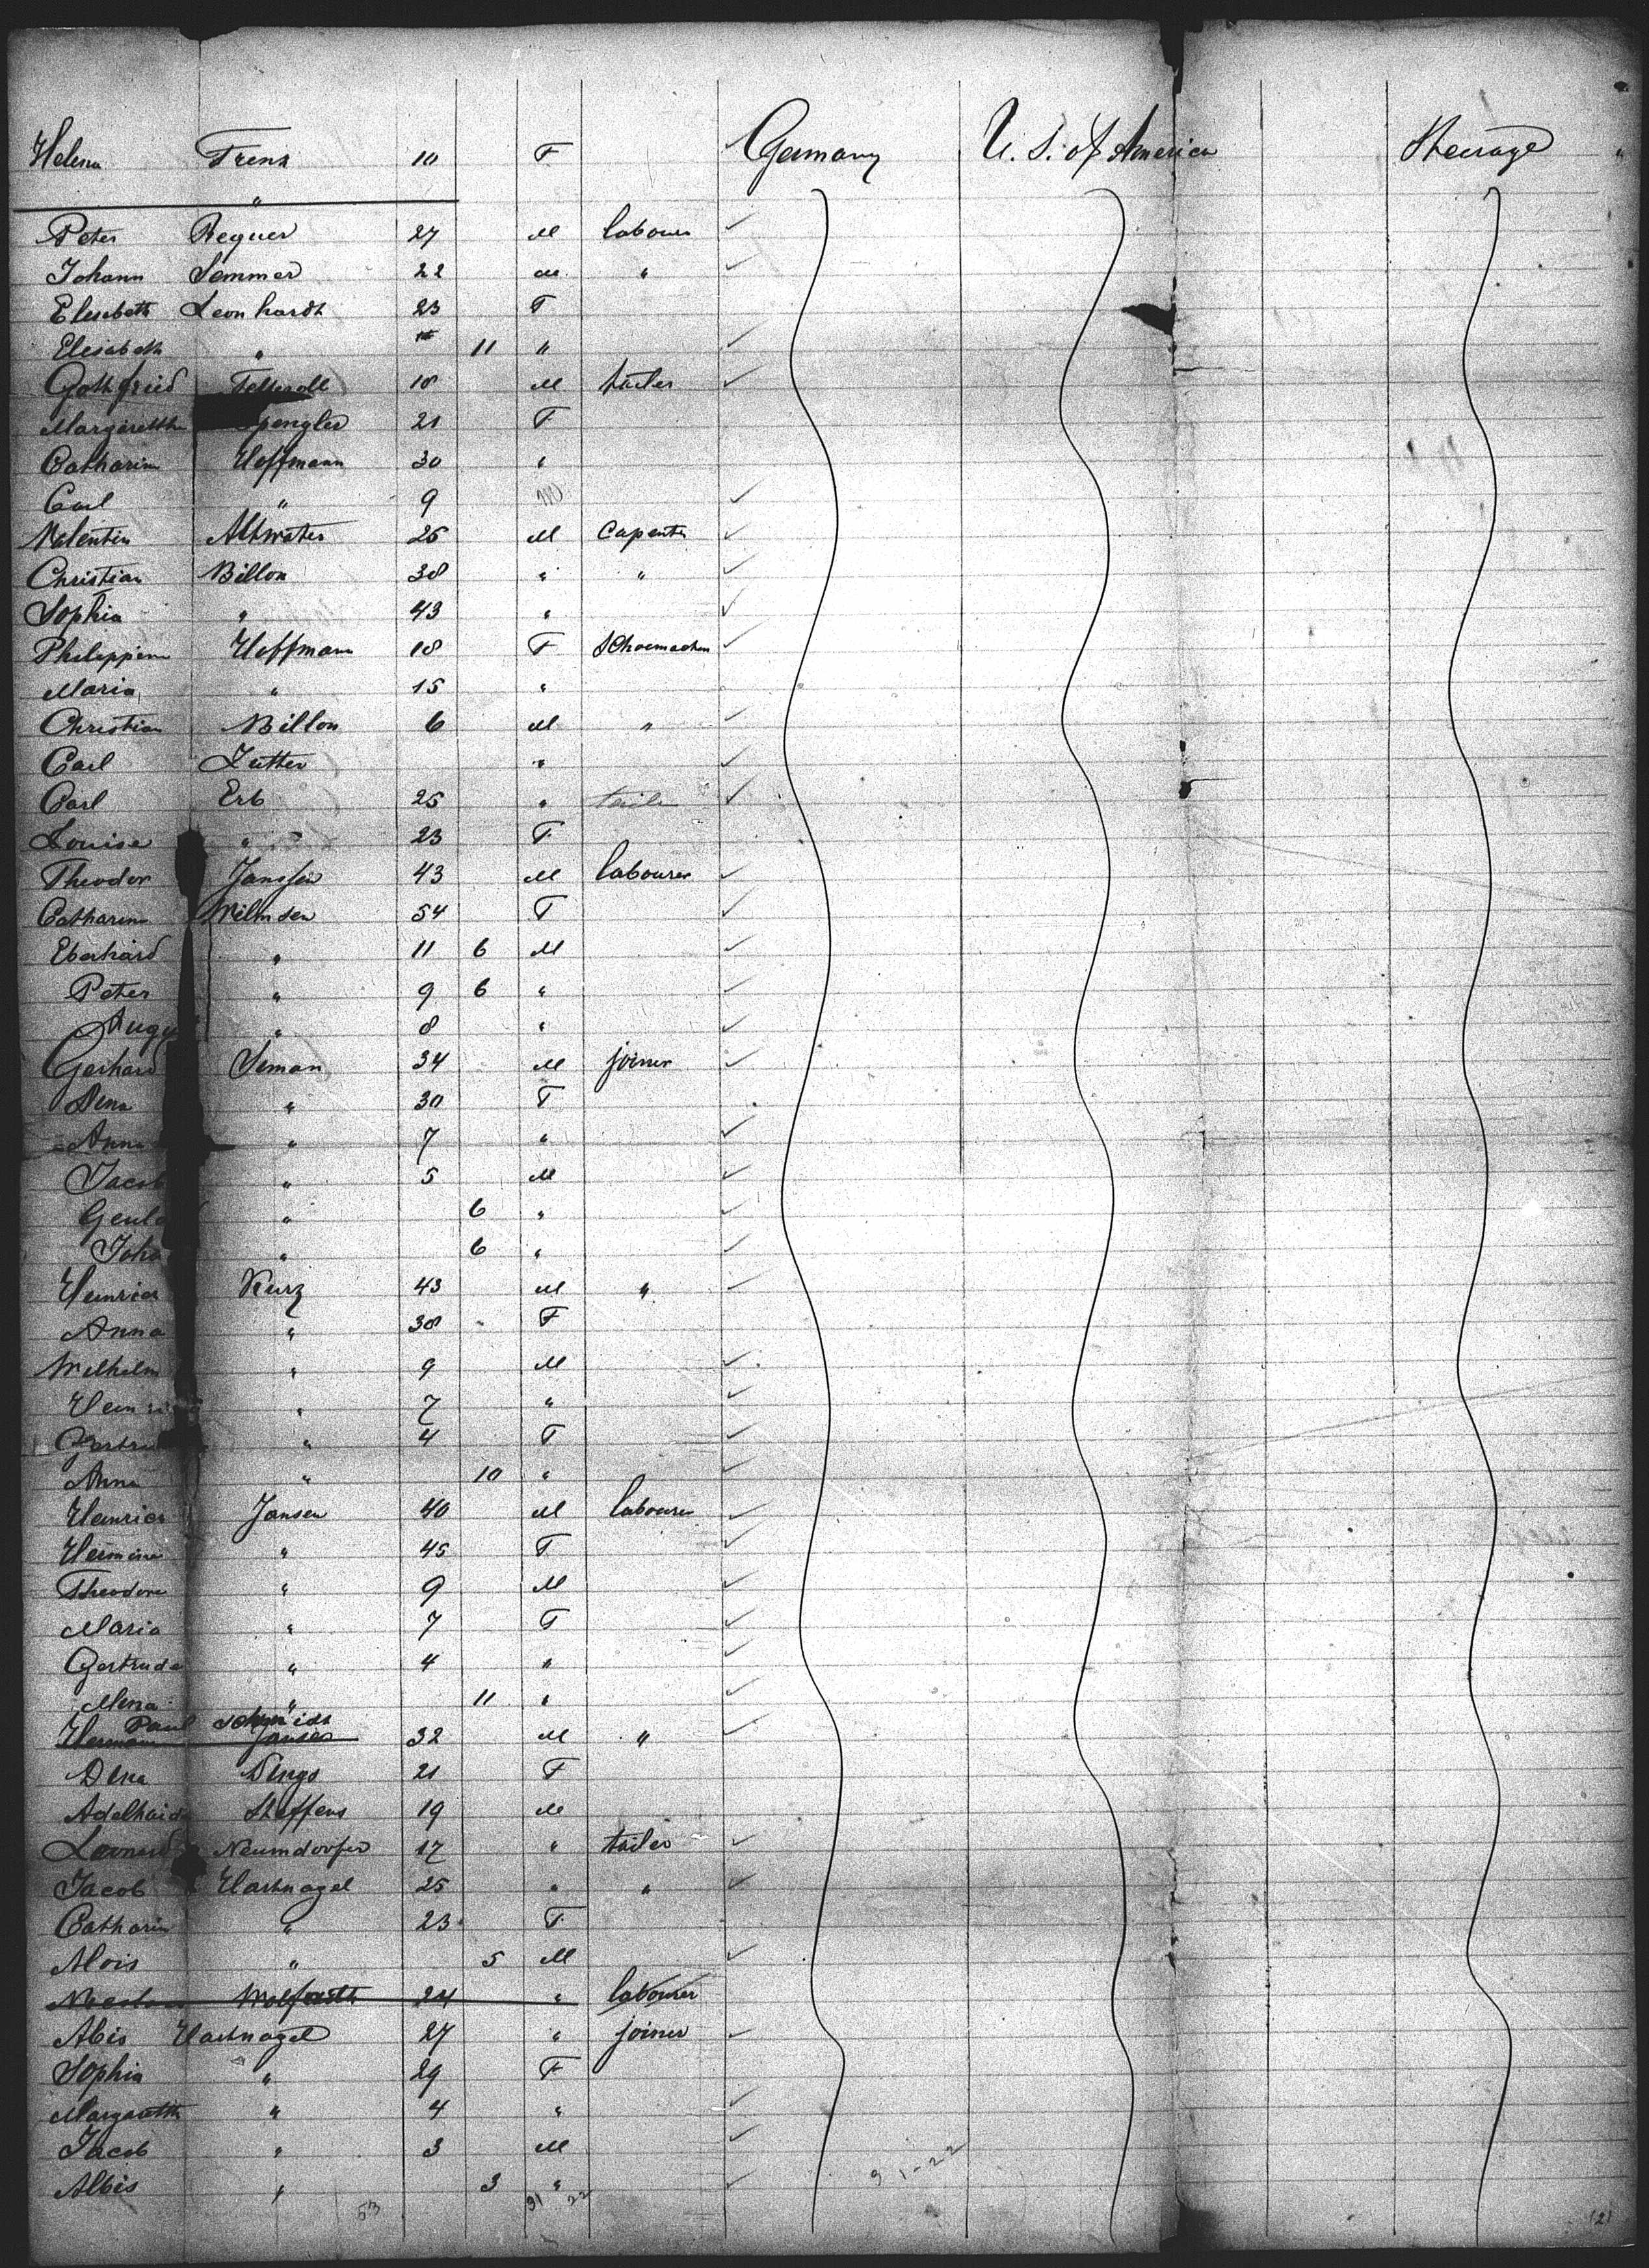 Helena Frenz 10 F Germany U. S. of America Steerage "
"
Peter Regner 27 M labourer
Johann Semmer 22 M "
Elisabeth Leonhardt 23 F
Elisabeth " 11 "
Gottfried 18 M tailer
Margarettha Spengler 21 F
Catharine Hoffmann 30 "
Carl " 9 M
Valentin Altwater 25 M Capenter
Christian Billon 38 " "
Sophia " 43 "
Philippine Hoffmann 18 F Schoemacher
Maria " 15 "
Christian Billon 6 M "
Carl Lutter "
Carl Erb 25 " tailer
Louise " 23 F
Theodor Janssen 43 M labourer
Catharine Wilmsen 54 F
Eberhard " 11 6 M
Peter " 9 6 "
Augu " 8 "
Gerhard Seman 34 M joiner
Dena " 30 F
Anna " 7 "
Jacob " 5 M
" 6 "
Joha " 6 "
Heinrich Kurz 43 M "
Anna " 38 F
Wilhelm " 9 M
Heinrich " 7 "
Gertru " 4 F
Anna " 10 "
Heinrich Jansen 40 M labourer
Hermina " 45 F
Theodore " 9 M
Maria " 7 F
Gertrude " 4 "
Mena " 11 "
Paul Schmidt
Hermann Jansen 32 M "
Dena Dirgs 21 F
Adelhaide Steffens 19 M
Leonard Neumdorfer 17 " tailer
Jacob Hartnagel 25 " "
Catharin " 23 F
Alois " 5 M
Wolfarth 24 " labourer
Alois Hartnagel 27 " joiner
Sophia " 29 F
Margaretth " 4 "
Jacob " 3 M
Albis " 3 "
53 31 22 31-22
(2)